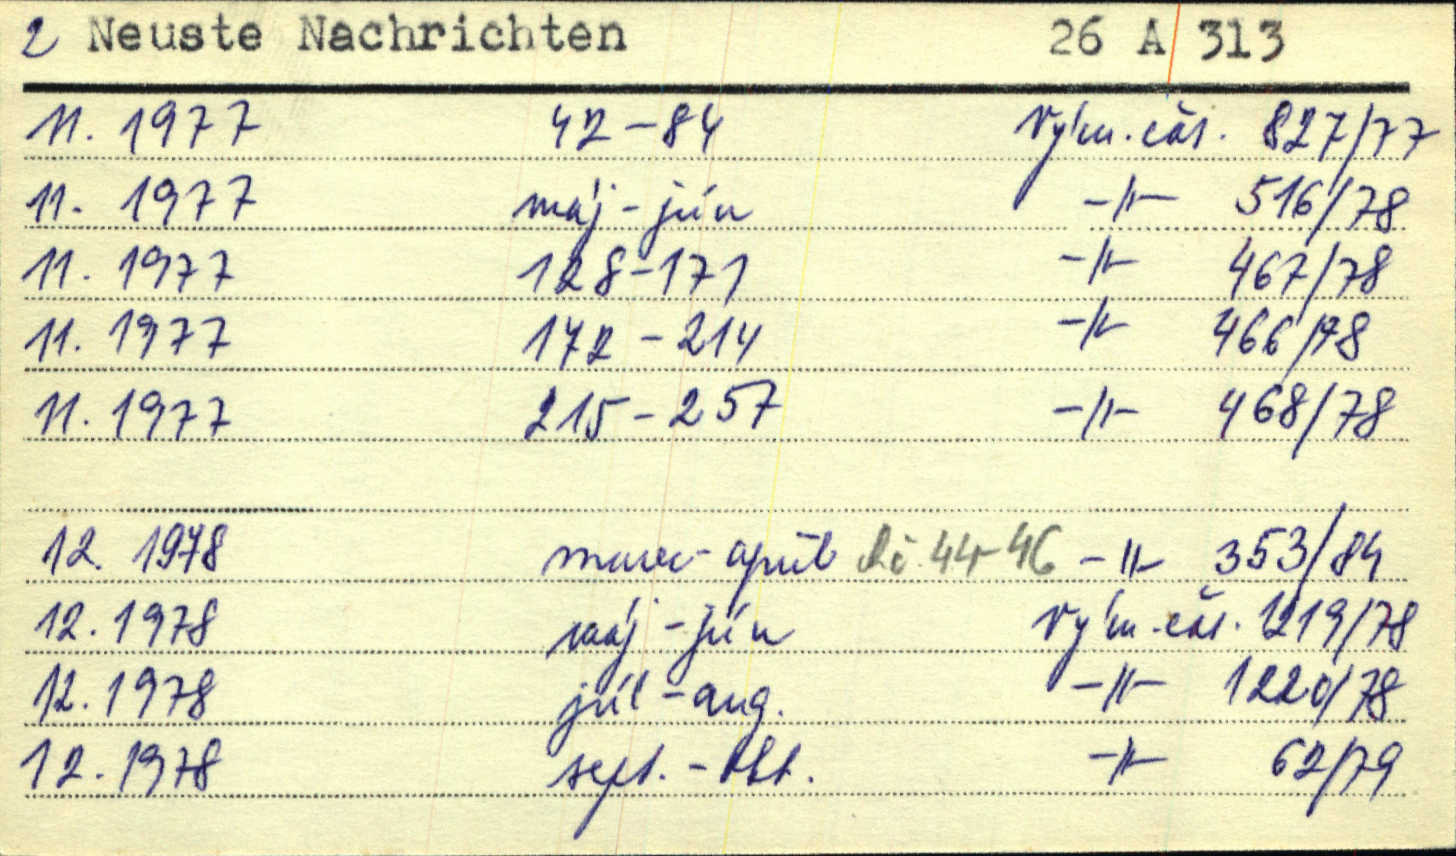 2 Neuste Nachrichten 26 A 313
11. 1977 42-84 Vým. čás. 827/77
11. 1977 máj-jún -〃- 516/78
11. 1977 128-171 -〃- 467/78
11. 1977 172-214 -〃- 466/78
11. 1977 215-257 -〃- 468/78
12. 1978 marec-apríl 44-46 -〃- 353/84
12. 1978 máj-jún Vým. čás. 1219/78
12. 1978 júl-aug. -〃- 1220/78
12. 1978 sept.-okt. -〃- 62/79